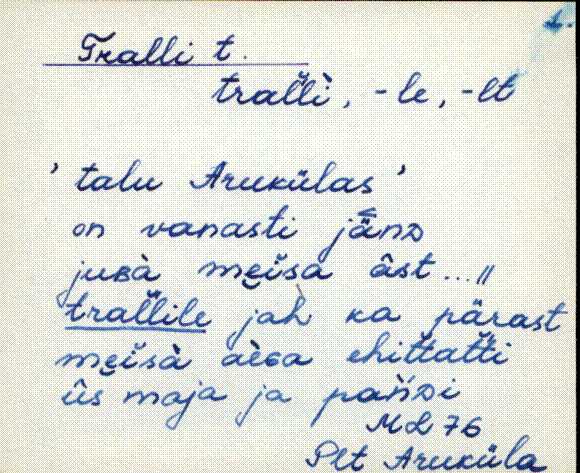 1.
Tralli t.
tral̆l̆ì, -le, -lt
' talu Aruкülas '
on vanasti jä̆nᴅ
juʙà mei̯sa âst ... //
tral̆l̆ile jah ka pärast
mei̯sà àèɢa ehit̆t̆at̆t̆i
üs maja ja pan̆̀ᴅi
ML 76
Plt Arukküla